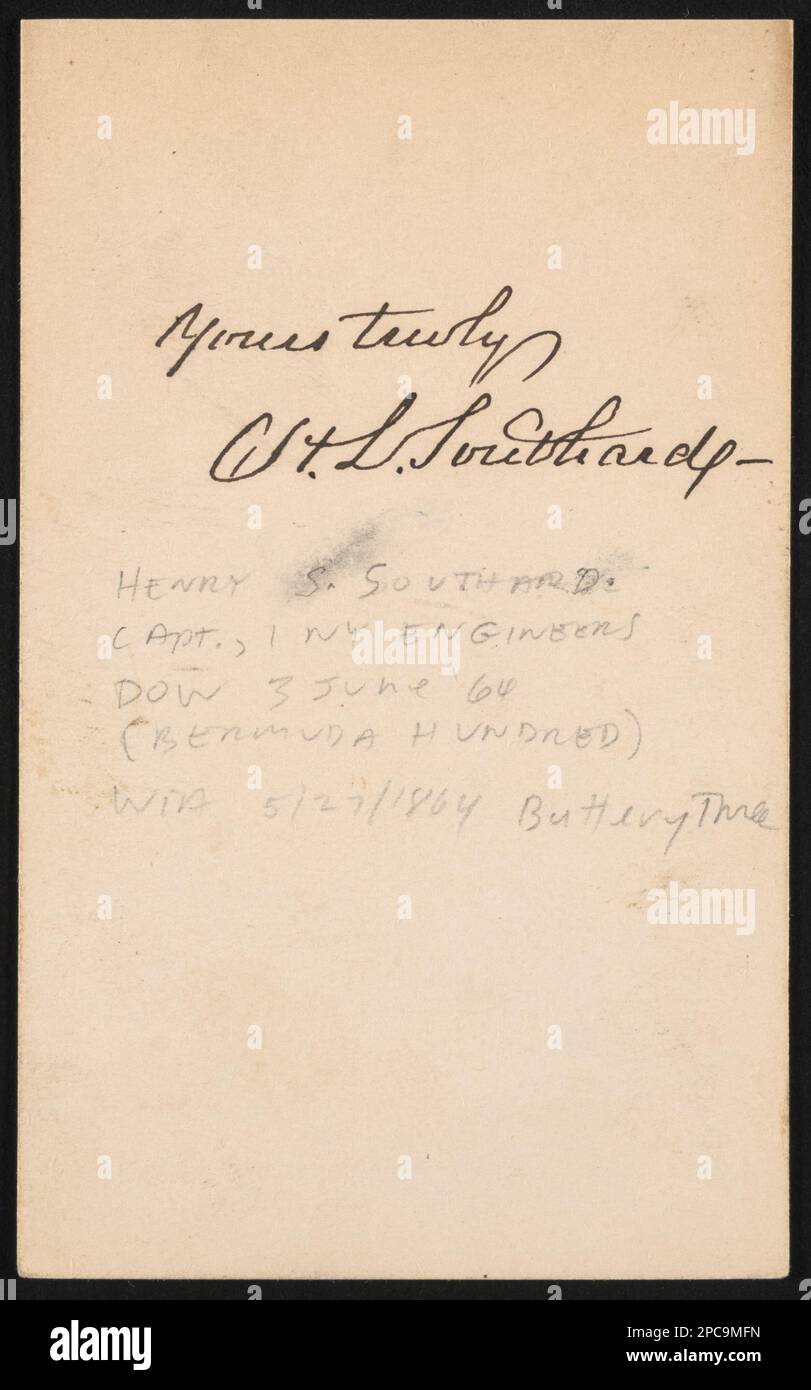 Yours truly
H. L. Southard –
HENRY S. SOUTHARD.
CAPT., 1 NY ENGINEERS
DOW 3 JUNE 64
(BERMUDA HUNDRED)
WIA 5/27/1864 Battery Three
alamy
alamy
alamy
Image ID: 2PC9MFN
www.alamy.com